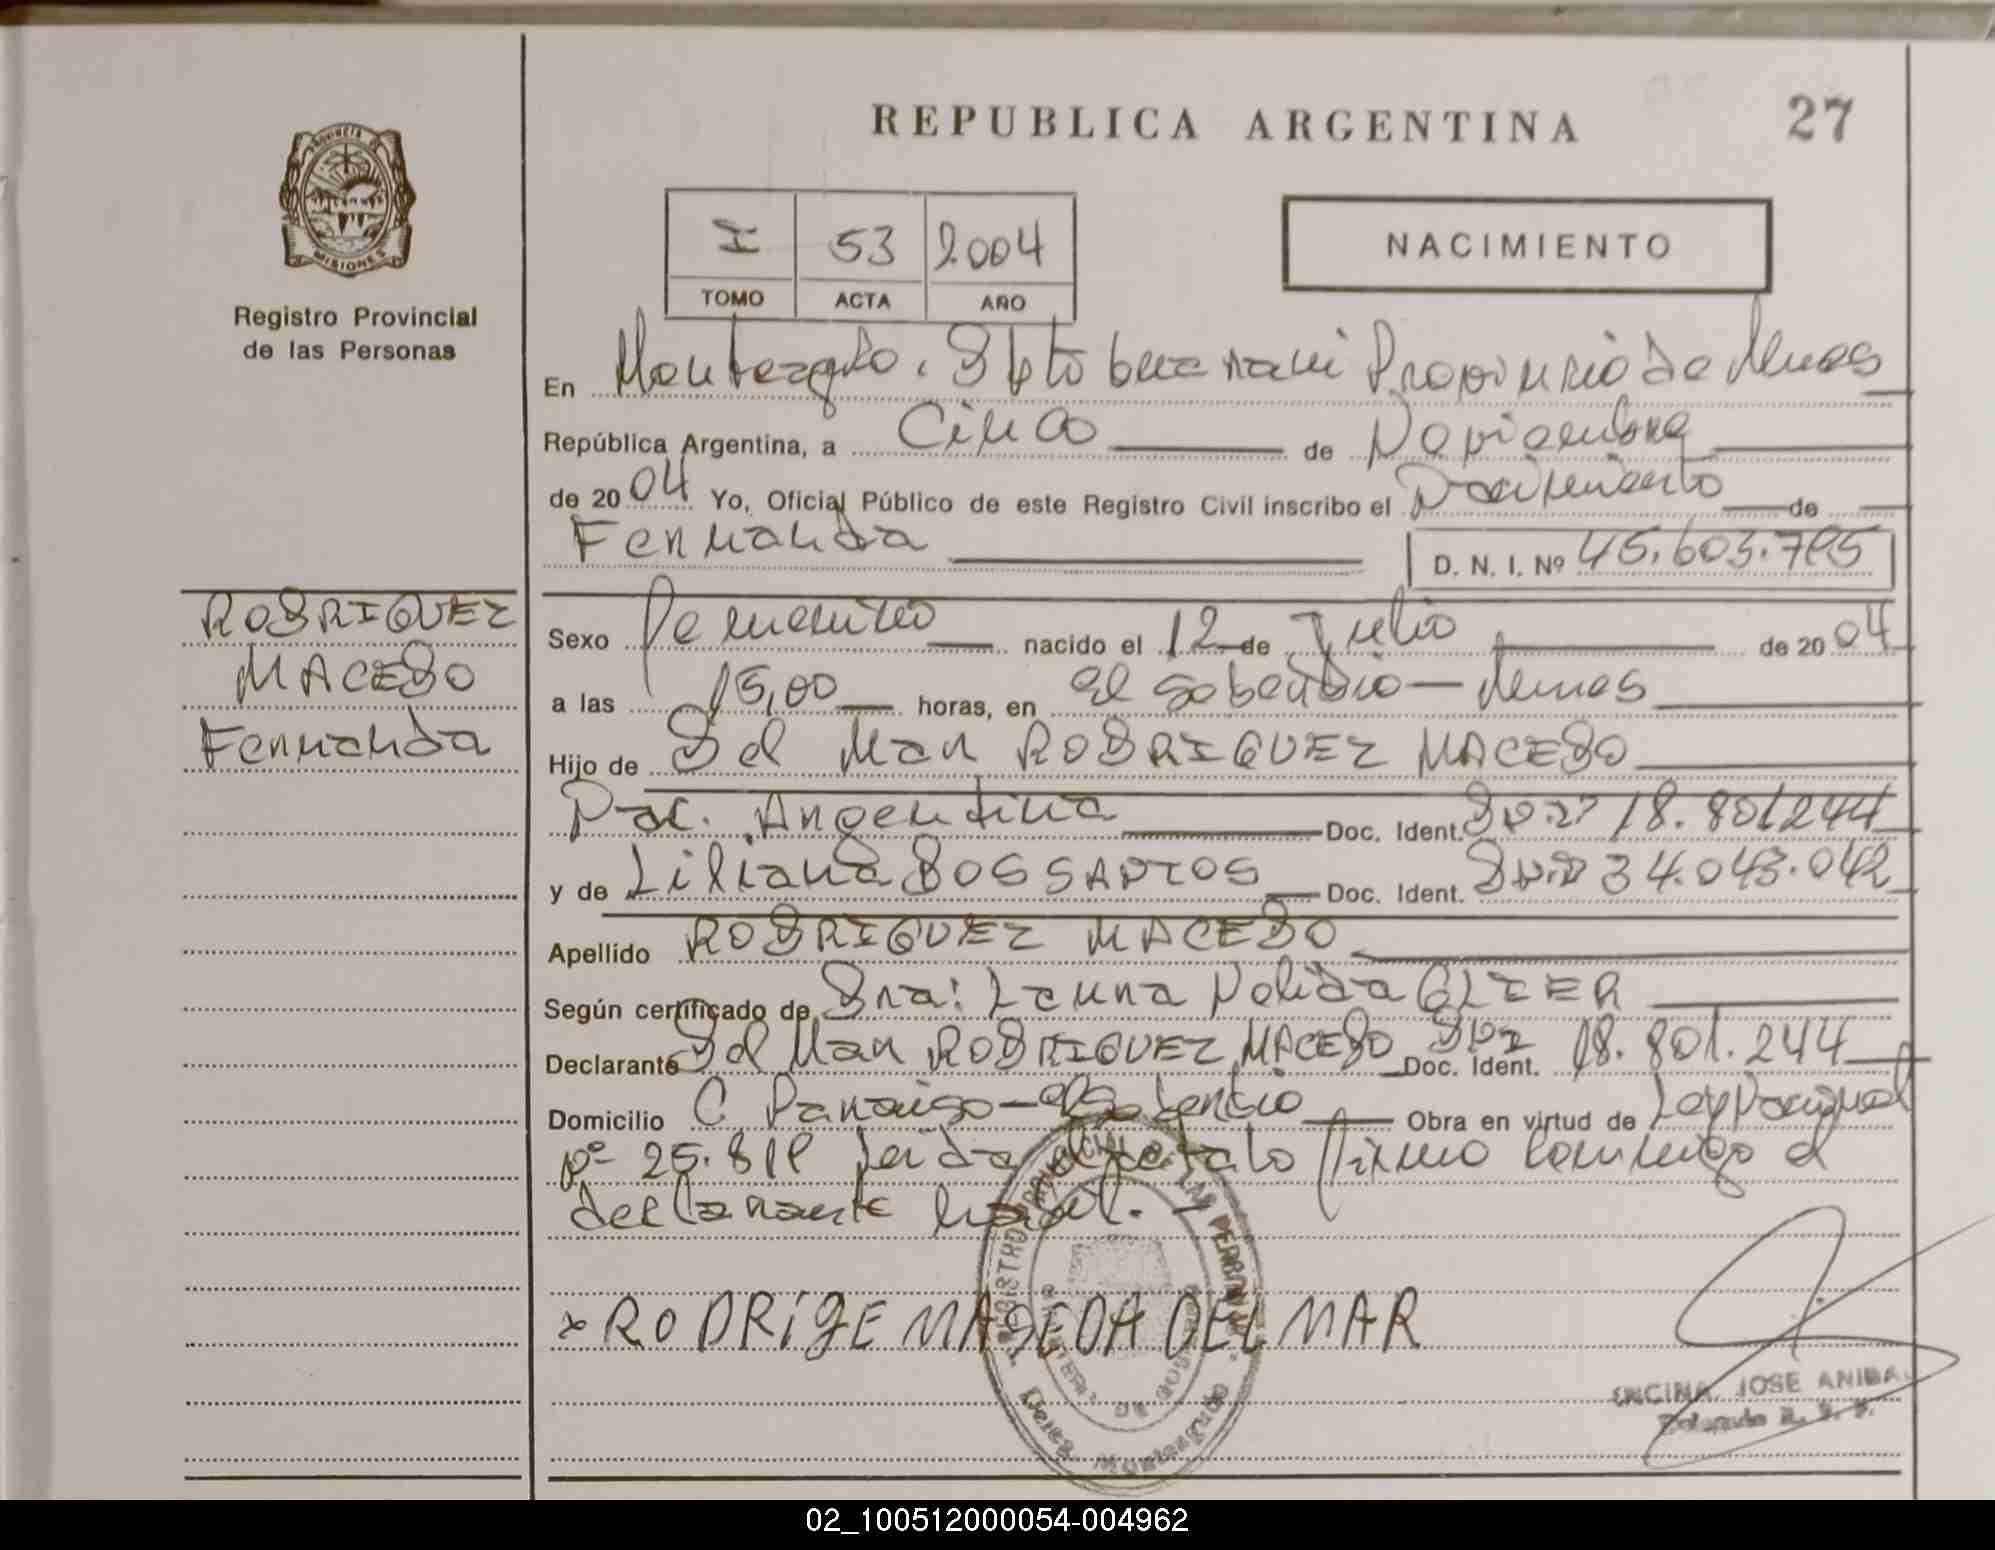 REPUBLICA ARGENTINA
27
PROVINCIA DE
MISIONES
Registro Provincial
de las Personas
I 53 2004
TOMO ACTA AÑO
NACIMIENTO
En Monteagudo, Dpto Guaraní Provincia de Mnes
República Argentina, a Cinco de Noviembre
de 2004 Yo, Oficial Público de este Registro Civil inscribo el Nacimiento de
Fernanda
D. N. I. Nº 45.603.785
RODRIGUEZ
MACEDO
Fernanda
Sexo Femenino nacido el 12 de Julio de 2004
a las 15,00 horas, en El Soberbio - Mnes
Hijo de Del Mar RODRIGUEZ MACEDO
Nac. Argentina Doc. Ident. DNI 18.801244
y de Liliana DOS SANTOS Doc. Ident. DNI 34.043.042
Apellido RODRIGUEZ MACEDO
Según certificado de Sra: Laura Nelida GLIER
Declarante Del Mar RODRIGUEZ MACEDO DNI Doc. Ident. 18.801.244
Domicilio C Paraiso - El Soberbio Obra en virtud de Ley Nacional
Nº 25.819 Leida el acta lo firma conmigo el
declarante
x RODRIGE MASEDA DELMAR
REGISTRO PROVINCIAL DE LAS PERSONAS
MINISTERIO DE GOBIERNO
Deleg. Monteagudo
ENCINA, JOSE ANIBAL
Delegado R. P. P.
02_100512000054-004962